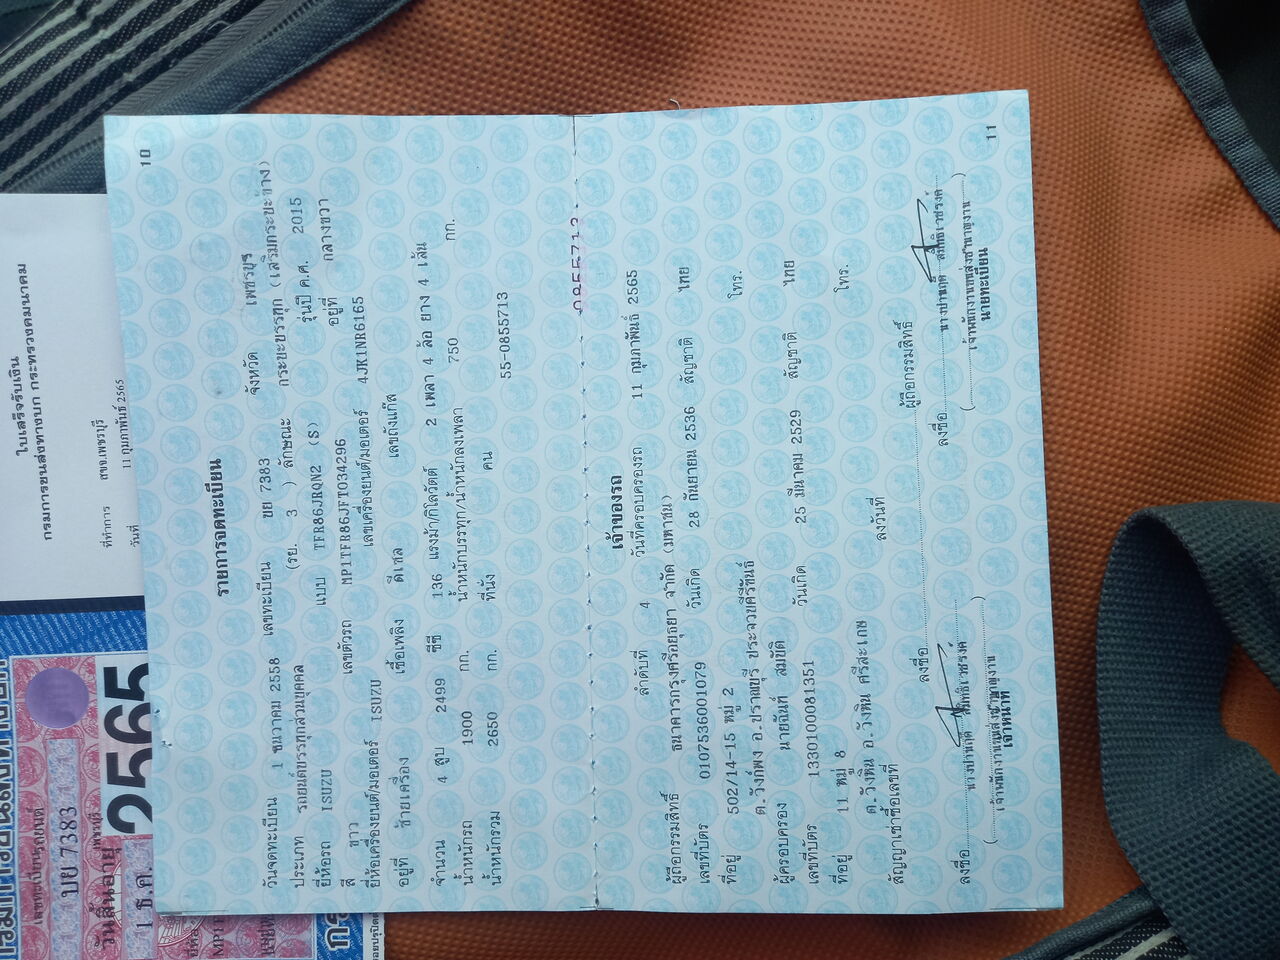 10
รายการจดทะเบียน
วันจดทะเบียน 1 ธนวาคม 2558 เลขทะเบียน ขย 7383 จังหวัด เพชรบุรี
ประเภท รถยนต์บรรทุกส่วนบุคคล (รย. 3 ) ลักษณะ กระบะบรรทุก (เสริมกระบะข้าง)
ยี่ห้อรถ ISUZU แบบ TFR86JRQN2 (S) รุ่นปี ค.ศ. 2015
สี ขาว เลขตัวรถ MP1TFR86JFT034296 อยู่ที่ กลางขวา
ยี่ห้อเครื่องยนต์/มอเตอร์ ISUZU เลขเครื่องยนต์/มอเตอร์ 4JK1NR6165
อยู่ที่ ซ้ายเครื่อง เชื้อเพลิง ดีเซล เลขถังแก๊ส
จำนวน 4 สูบ 2499 ซีซี 136 แรงม้า/กิโลวัตต์ 2 เพลา 4 ล้อ ยาง 4 เส้น
น้ำหนักรถ 1900 กก. น้ำหนักบรรทุก/น้ำหนักลงเพลา 750 กก.
น้ำหนักรวม 2650 กก. ที่นั่ง คน
55-0855713
เจ้าของรถ
ลำดับที่ 4 วันที่ครอบครองรถ 11 กุมภาพันธ์ 2565
ผู้ถือกรรมสิทธิ์ ธนาคารกรุงศรีอยุธยา จำกัด (มหาชน)
เลขที่บัตร 0107536001079 วันเกิด 28 กันยายน 2536 สัญชาติ ไทย
ที่อยู่ 502/14-15 หมู่ 2 โทร.
ต.วังก์พง อ.ปราณบุรี ประจวบคีรีขันธ์
ผู้ครอบครอง สมบัติ
เลขที่บัตร 1330100081351 วันเกิด 25 มีนาคม 2529 สัญชาติ ไทย
ที่อยู่ 11 หมู่ 8 โทร.
ต.วังหิน อ.วังหิน ศรีสะเกษ
สัญญาเช่าซื้อเลขที่ ลงวันที่
ลงชื่อ ผู้ถือกรรมสิทธิ์
ลงชื่อ ลงชื่อ
เจ้าหน้าที่ นายทะเบียน
11
ใบเสร็จรับเงิน
กรมการขนส่งทางบก กระทรวงคมนาคม
ที่ทำการ สขจ.เพชรบุรี
วันที่ 11 กุมภาพันธ์ 2565
เลขทะเบียนรถยนต์
วันสิ้นอายุ
1 ธ.ค. 2565